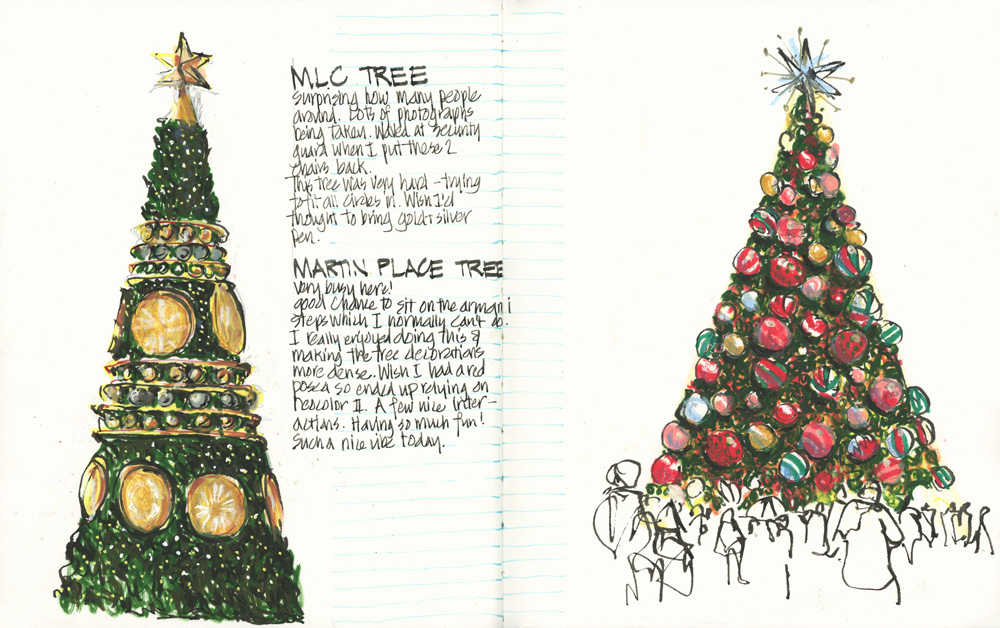 MLC TREE
Surprising how many people
around. Lots of photographs
being taken. Waved at security
guard when I put these 2
chairs back.
This tree was very hard - trying
to fit all circles in. Wish I'd
thought to bring gold + silver
pen.
MARTIN PLACE TREE
Very busy here!
good chance to sit on the armani
steps which I normally can't do.
I really enjoyed doing this &
making the tree decorations
more dense. Wish I had a red
posca so ended up relying on
neocolor II. A few nice inter-
actions. Having so much fun!
Such a nice vibe today.